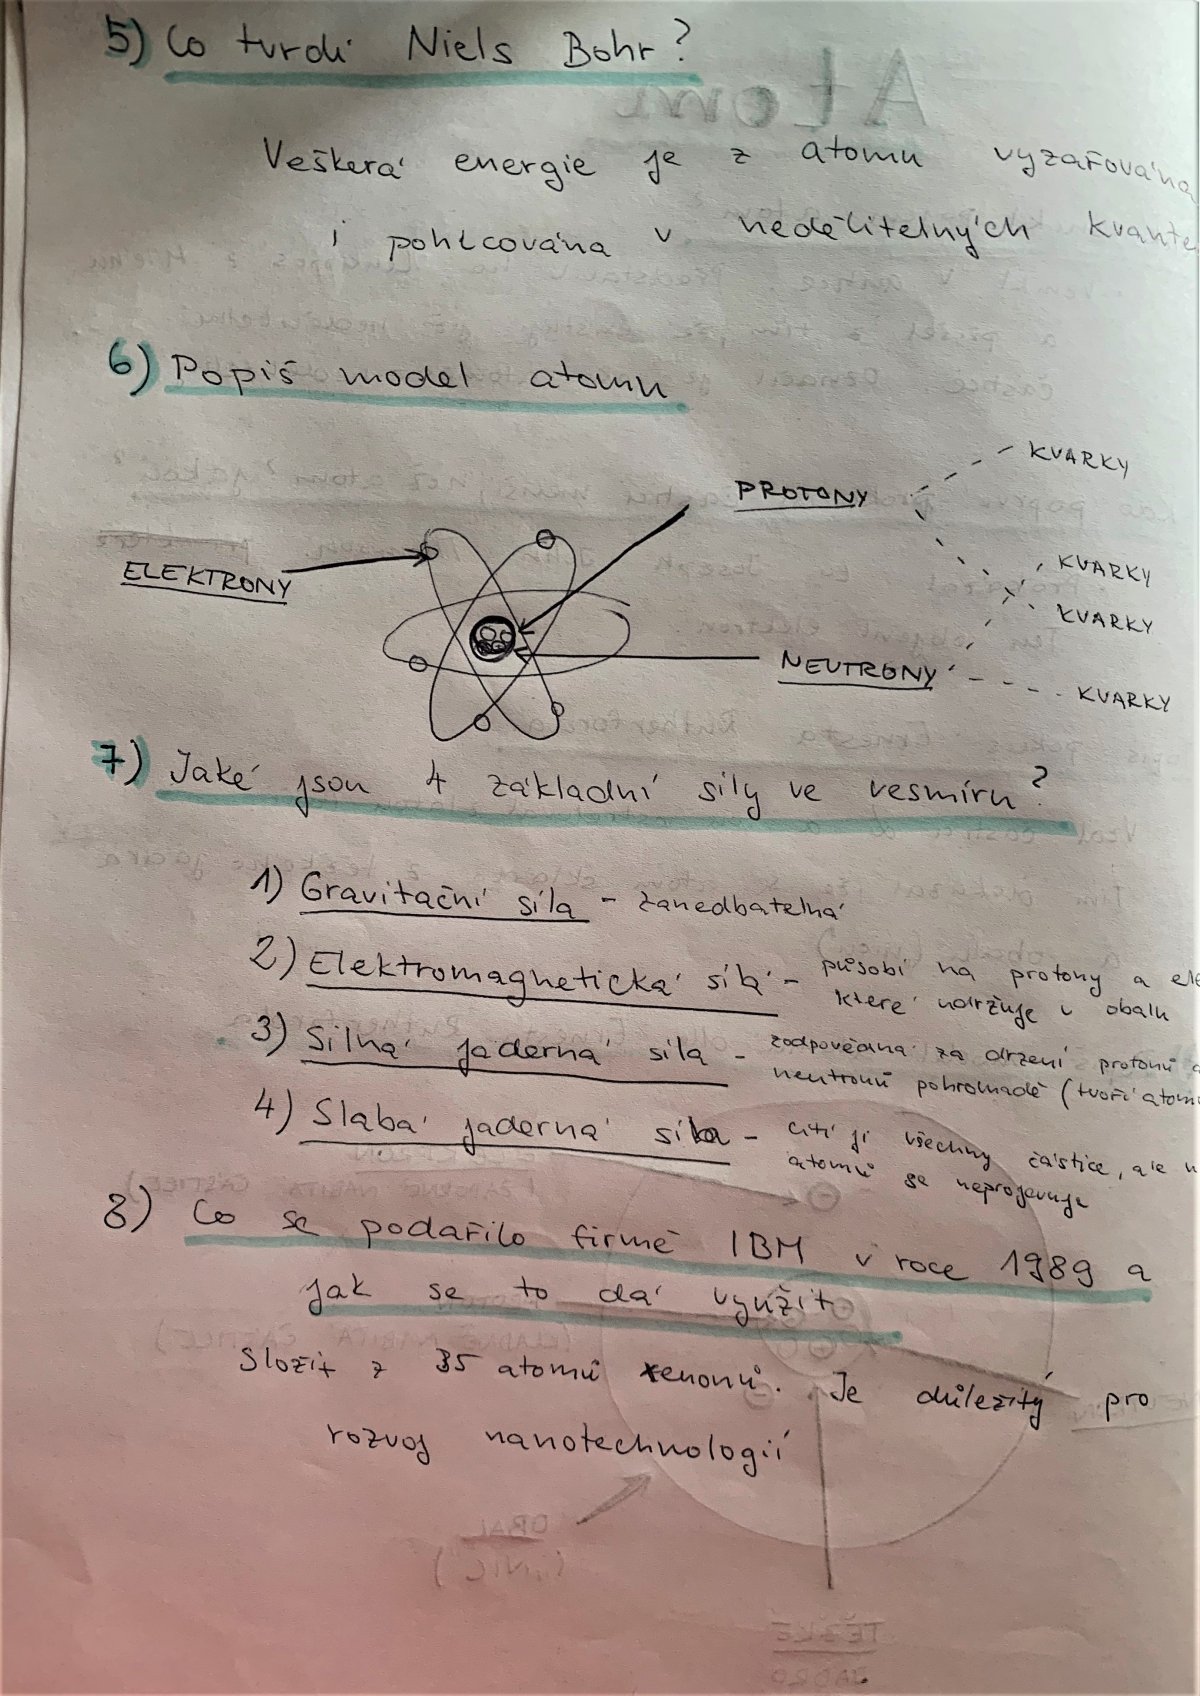 5) Co tvrdí Niels Bohr?
Veškerá energie je z atomu vyzařována
i pohlcována v nedělitelných kvante
6) Popiš model atomu
KVARKY
PROTONY
KVARKY
ELEKTRONY
KVARKY
NEUTRONY
KVARKY
7) Jaké jsou 4 základní síly ve vesmíru?
1) Gravitační síla - zanedbatelná
2) Elektromagnetická síla - působí na protony a ele
které udržuje v obalu
3) Silná jaderná síla - zodpovědná za držení protonů a
neutronů pohromadě (tvoří atom
4) Slabá jaderná síla - cítí ji všechny částice, ale u
atomů se neprojevuje
8) Co se podařilo firmě IBM v roce 1989 a
jak se to dá využít
Složit z 35 atomů xenonů. Je důležitý pro
rozvoj nanotechnologií